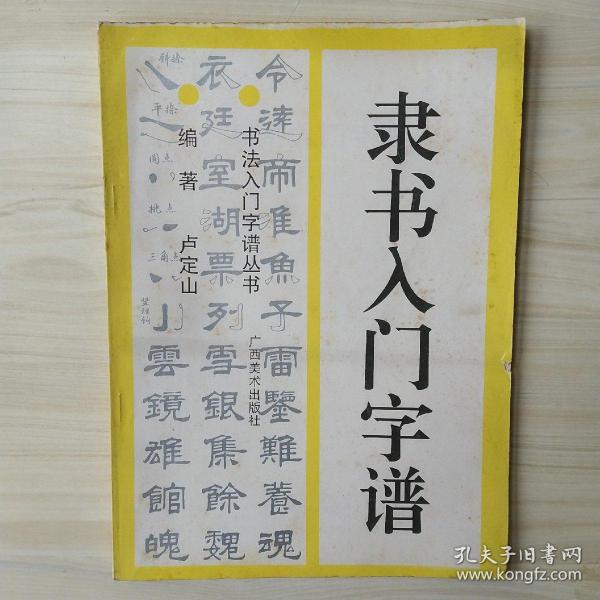 隶书入门字谱
书法入门字谱丛书
广西美术出版社
编著 卢定山
令 达 帝 淮 魚 予 雷 鑒 難 養 魂
衣 廷 室 湖 票 列 雪 銀 集 餘 魏
斜捺
平捺
圆点
挑点
三角点
雲 鏡 雄 館 魄
孔夫子旧书网
www.kongfz.com